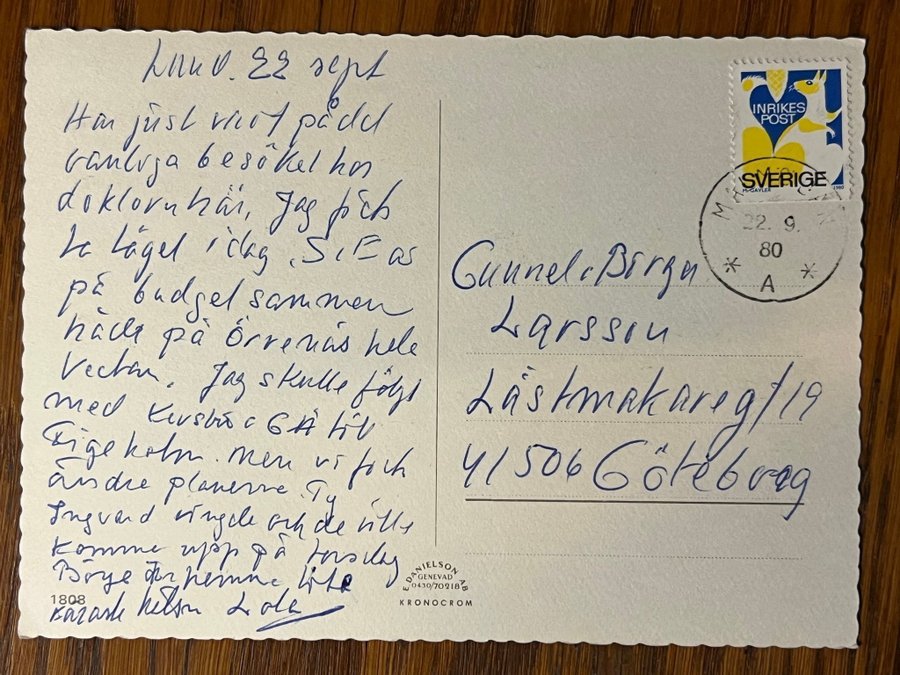 Lund. 22 sept
Har just varit på det
vänliga besöket hos
doktorn här. Jag fick
ta tåget idag. S.E as
på budget sammen
träde på Örenäs hela
veckan. Jag skulle följt
med Kerstin o GÅ till
Figeholm men vi fick
ändra planerna. Ty
Ingvard ringde och de ville
komma upp på torsdag
Börje är hemma
Lola
1808
E. DANIELSON AB
GENEVAD
0430/70218
KRONOCROM
INRIKES
POST
SVERIGE
H. GAVLER 1980
22. 9.
80
A
Gunnel o Börge
Larsson
Lästmakareg/ 19
41506 Göteborg